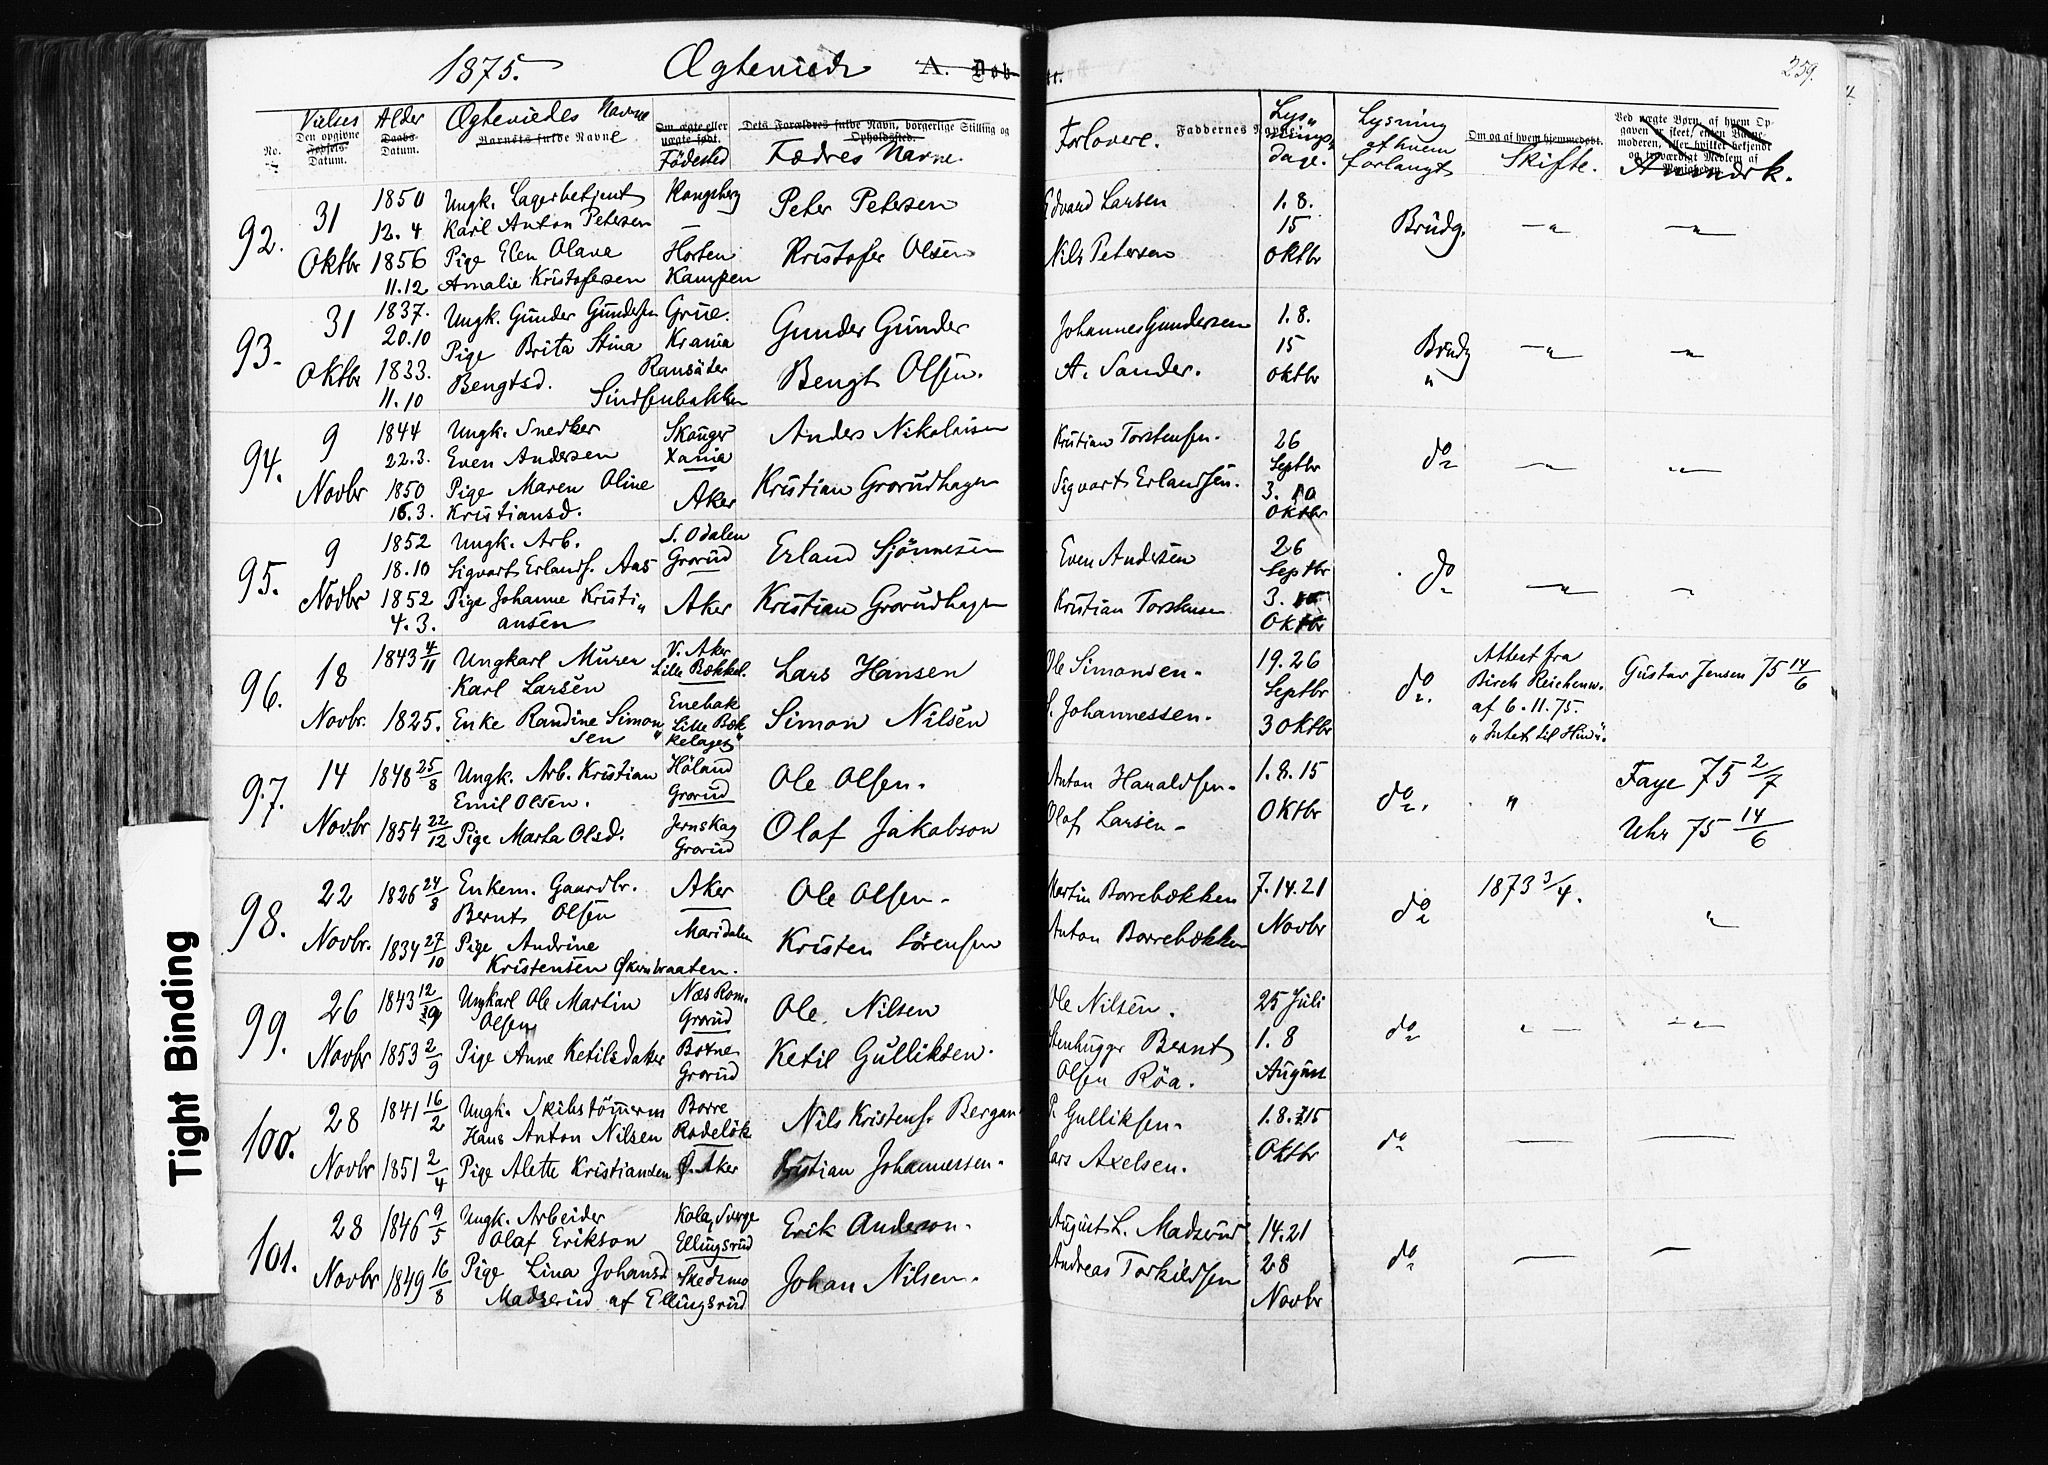 1875. Ægteviede A. Døb
259.
No.
Vielses
Den opgivne
Fødsels-
Datum.
Alder
Daabs-
Datum.
Ægteviedes Navne
Barnets fulde Navn
Om ægte eller
uægte født.
Födested
Dets Forældres fulde Navn, borgerlige Stilling og
Opholdssted.
Fædres Navne.
Forlovere.
Faddernes Navne
Lys„
nings„
dage.
Lysning
af hvem
forlangt
Om og af hvem hjemmedøbt.
Skifte.
Ved uægte Børn, af hvem Op-
gaven er skeet, enten Barne-
moderen, eller hvilket bekjendt
og troværdigt Medlem af
Menigheden.
Anmærk.
92.
31
Oktbr
1850
12. 4
1856
11.12
Ungk. Lagerbetjent
Karl Anton Petersen
Pige Elen Olave
Amalie Kristofersen
Kongsberg
Horten
Kampen
Peter Petersen
Kristofer Olsen
Edvard Larsen
Nils Petersen
1. 8.
15
Oktbr
Brüdg.
93.
31
Oktbr
1837.
20.10
1833.
11.10
Ungk. Gunder Gundersen
Pige Brita Stina
Bengtsd.
Grue.
Krania
Ransäter
Sinsenbakken
Gunder Gunder
Bengt Olsen.
Johannes Gundersen
A. Sander.
1. 8.
15
Oktbr
Brudg
"
94.
9
Novbr
1844
22.3.
1850
16.3.
Ungk. Snedker
Even Andersen
Pige Maren Oline
Kristiansd.
Skouger
Xania
Aker
Anders Nikolaisen
Kristian Grorudhagen
Kristian Torstensen.
Sigvart Erlandsen.
26
Septbr
3. 10
Oktbr
do
95.
9
Novbr
1852
18.10
1852
4. 3.
Ungk. Arb.
Sigvart Erlands. Aas
Pige Johanne Kristi„
ansen
S. Odalen
Grorud
Aker
Erland Sjönnesen
Kristian Grorudhagen
Even Andersen
Kristian Torstensen
26
Septbr
3. 10
Oktbr
do
96.
18
Novbr.
1843 4/11
1825.
Ungkarl Murer
Karl Larsen
Enke Randine Simon„
sen
V. Aker
Lille Bækkel.
Enebak
Lille Bæk
kelaget
Lars Hansen
Simon Nilsen
Ole Simonsen.
S. Johannessen.
19. 26
Septbr
3 Oktbr
do.
Attest fra
Birch Reichenw.
af 6. 11. 75.
„Intet til Hind".
Gustav Jensen 75 14/6
97.
14
Novbr
1848 25/8
1854 22/12
Ungk. Arb. Kristian
Emil Olsen.
Pige Marta Olsd.
Höland
Grorud
Jernskag
Grorud
Ole Olsen.
Olof Jakobson
Anton Haraldsen.
Olaf Larsen
1. 8. 15
Oktbr
do.
"
Faye 75 2/7
Uhr 75 14/6
98.
22
Novbr.
1826 24/8
1834 27/10
Enkem. Gaardbr.
Bernt Olsen
Pige Andrine
Kristensen Økernbraaten.
Aker
Maridalen
Ole Olsen.
Kristen Sörensen
Martin Borrebækken
Anton Borrebækken
7. 14. 21
Novbr
do
1873 3/4.
"
99.
26
Novbr
1843 12/9
1853 2/9
Ungkarl Ole Martin
Olsen
Pige Anne Ketilsdatter
Næs Rom.
Grorud
Botne
Grorud
Ole Nilsen
Ketil Gulliksen.
Ole Nilsen.
Stenhugger Bernt
Olsen Röa.
25 Juli
1. 8
August
do
100.
28
Novbr
1841 16/2
1851 2/4
Ungk. Skibstömmerm
Hans Anton Nilsen
Pige Alette Kristiansen
Borre
Rodelök
Ø. Aker
Nils Kristens. Bergan
Kristian Johannessen.
P. Gulliksen.
Lars Axelsen.
1. 8. 15
Oktbr
do
101.
28
Novbr
1846 9/5
1849 16/8
Ungk. Arbeider
Olaf Erikson
Pige Lina Johansd
Madserud af Ellingsrud
Kola, Sverge
Ellingsrud
Skedsmo
Erik Anderson.
Johan Nilsen.
August L. Madserud
Andreas Torkildsen
14. 21
28
Novbr
do
Tight Binding